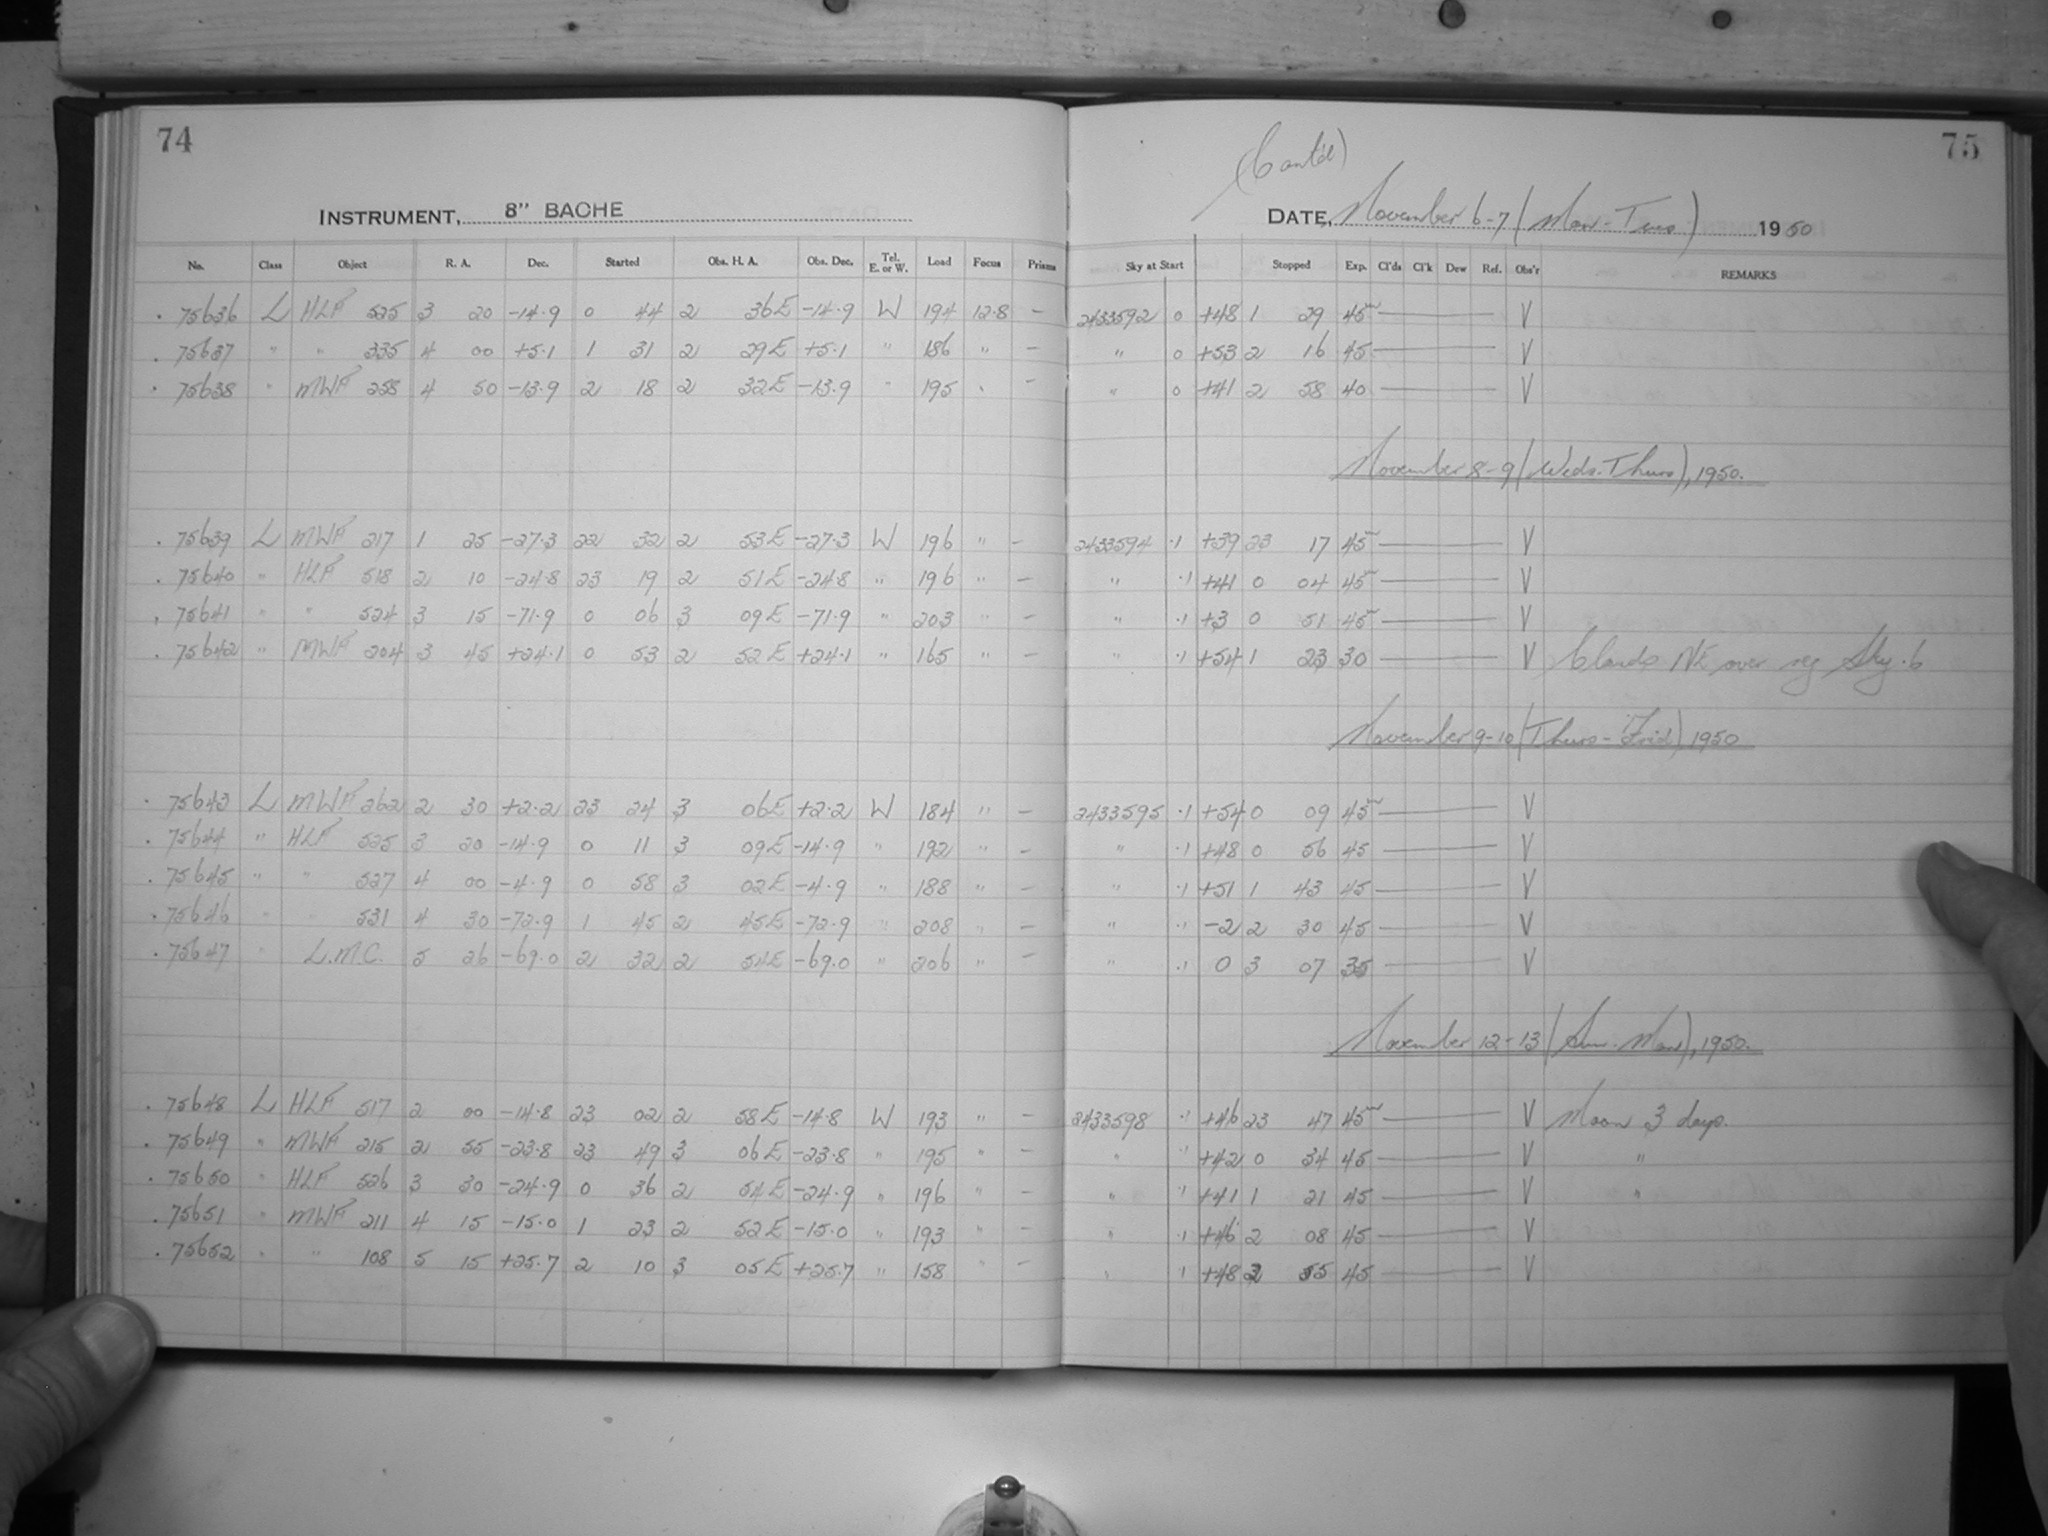 74
INSTRUMENT, 8" BACHE
No. Class Object R. A. Dec. Started Obs. H. A. Obs. Dec. Tel. E. or W. Load Focus Prisms
75636 L HLF 525 3 20 -14.9 0 44 2 36E -14.9 W 194 12.8 -
75637 " " 335 4 00 +5.1 1 31 2 29E +5.1 " 186 " -
75638 " MWF 258 4 50 -13.9 2 18 2 32E -13.9 " 195 " -
75639 L MWF 217 1 25 -27.3 22 32 2 53E -27.3 W 196 " -
75640 " HLF 518 2 10 -24.8 23 19 2 51E -24.8 " 196 " -
75641 " " 524 3 15 -71.9 0 06 3 09E -71.9 " 203 " -
75642 " MWF 204 3 45 +24.1 0 53 2 52E +24.1 " 165 " -
75643 L MWF 262 2 30 +2.2 23 24 3 06E +2.2 W 184 " -
75644 " HLF 525 3 20 -14.9 0 11 3 09E -14.9 " 192 " -
75645 " " 527 4 00 -4.9 0 58 3 02E -4.9 " 188 " -
75646 " " 531 4 30 -72.9 1 45 2 45E -72.9 " 208 " -
75647 " L.M.C. 5 26 -69.0 2 32 2 54E -69.0 " 206 " -
75648 L HLF 517 2 00 -14.8 23 02 2 58E -14.8 W 193 " -
75649 " MWF 215 2 55 -23.8 23 49 3 06E -23.8 " 195 " -
75650 " HLF 526 3 30 -24.9 0 36 2 54E -24.9 " 196 " -
75651 " MWF 211 4 15 -15.0 1 23 2 52E -15.0 " 193 " -
75652 " " 108 5 15 +25.7 2 10 3 05E +25.7 " 158 " -
75
(Cont'd)
DATE, November 6-7 (Mon-Tues) 1950
Sky at Start Stopped Exp. Cl'ds Cl'k Dew Ref. Obs'r REMARKS
2433592 0 +48 1 29 45m V
" 0 +53 2 16 45 V
" 0 +41 2 58 40 V
November 8-9 (Weds-Thurs), 1950.
2433594 .1 +39 23 17 45m V
" .1 +41 0 04 45m V
" .1 +3 0 51 45m V
" .1 +54 1 23 30 V Clouds NE over reg Sky .6
November 9-10 (Thurs-Frid) 1950
2433595 .1 +54 0 09 45m V
" .1 +48 0 56 45 V
" .1 +51 1 43 45 V
" .1 -2 2 30 45 V
" .1 0 3 07 35 V
November 12-13 (Sun-Mon), 1950.
2433598 .1 +46 23 47 45m V Moon 3 days.
" .1 +42 0 34 45 V "
" .1 +41 1 21 45 V "
" .1 +46 2 08 45 V
" .1 +48 2 55 45 V